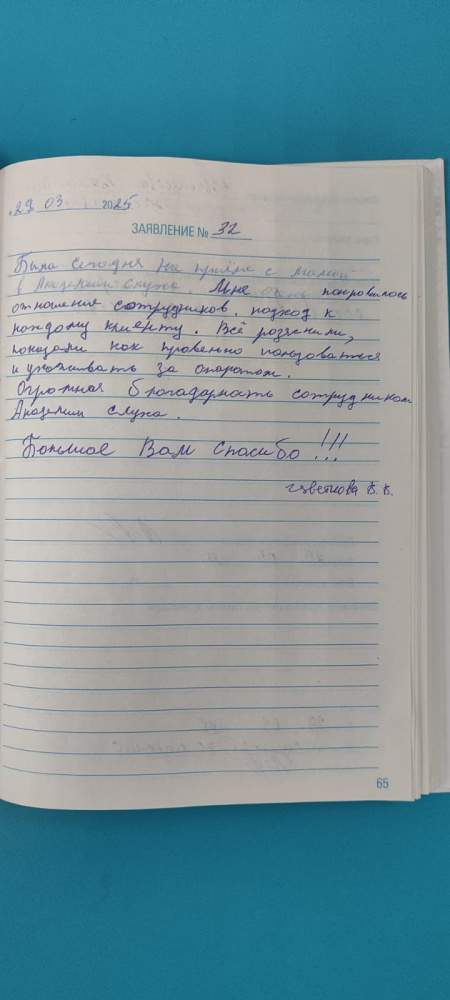 29 03 2025
ЗАЯВЛЕНИЕ № 32
Была сегодня на приёме с мамой
в Академии слуха. Мне понравилось
отношения сотрудников, подход к
каждому клиенту. Всё розяснили,
показали как провельно пользоваться
и ухаживать за апаратом.
Огромная благодарность сотрудникам
Академии слуха.
Большое Вам спасибо!!!
Цветкова В. В.
65